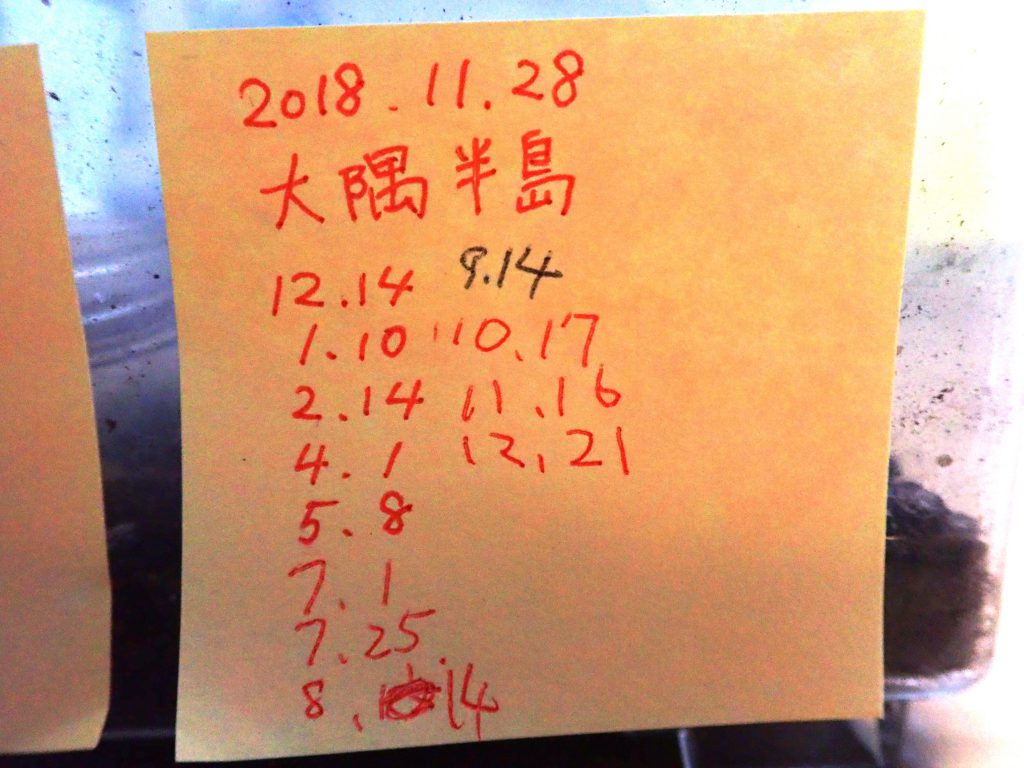 2018.11.28
大隅半島
12.14 9.14
1.10 10.17
2.14 11.16
4.1 12.21
5.8
7.1
7.25
8.14